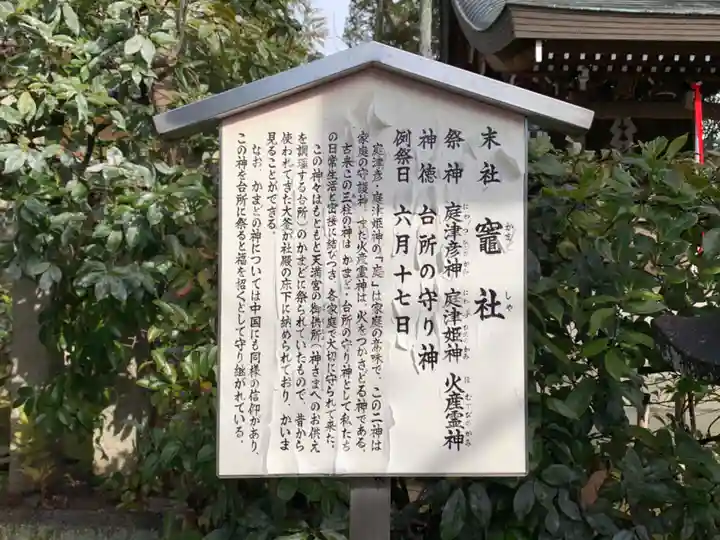 末社 竈社
かまど しゃ
祭神 庭津彦神 庭津姫神 火産霊神
神徳 台所の守り神
例祭日 六月十七日
庭津彦・庭津姫神の「庭」は家庭の意味で、この二神は
家庭の守護神、また火産霊神は、火をつかさどる神である。
古来この三柱の神は、かまど・台所の守り神として私たち
の日常生活と密接に結びつき、各家庭で大切に守られて来た。
この神々はもともと天満宮の御供所(神さまへのお供え
を調理する台所)のかまどに祭られていたもので、昔から
使われてきた大釜が社殿の床下に納められており、かいま
見ることができる。
なお、かまどの神については中国にも同様の信仰があり、
この神を台所に祭ると福を招くとして守り継がれている。